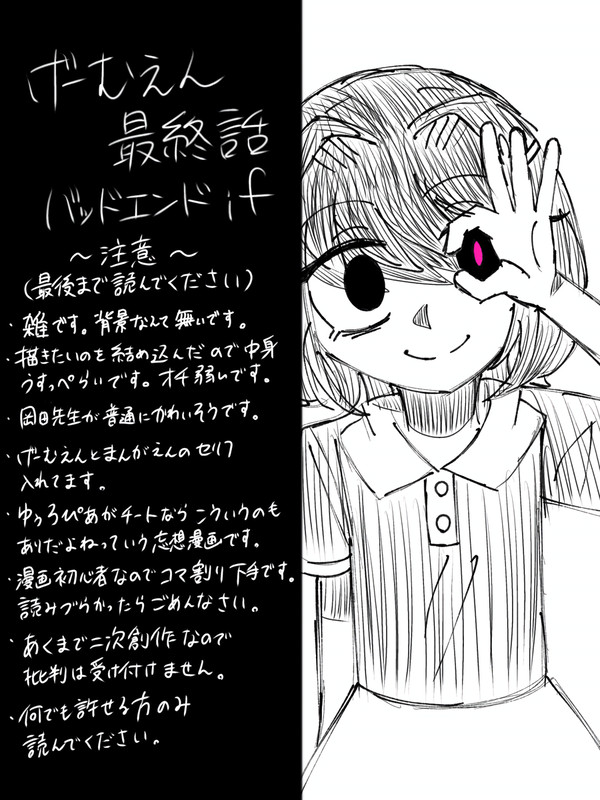 げーむえん
最終話
バッドエンドif
～注意～
(最後まで読んでください)
・雑です。背景なんて無いです。
・描きたいのを結め込んだので中身
うすっぺらいです。オチ弱いです。
・岡田先生が普通にかわいそうです。
・げーむえんとまんがえんのセリフ
入れてます。
・ゆうろぴあがチートならこういうのも
ありだよねっていう忘想漫画です。
・漫画初心者なのでコマ割り下手です。
読みづらかったらごめんなさい。
・あくまで二次創作なので
批判は受け付けません。
・何でも許せる方のみ
読んでください。